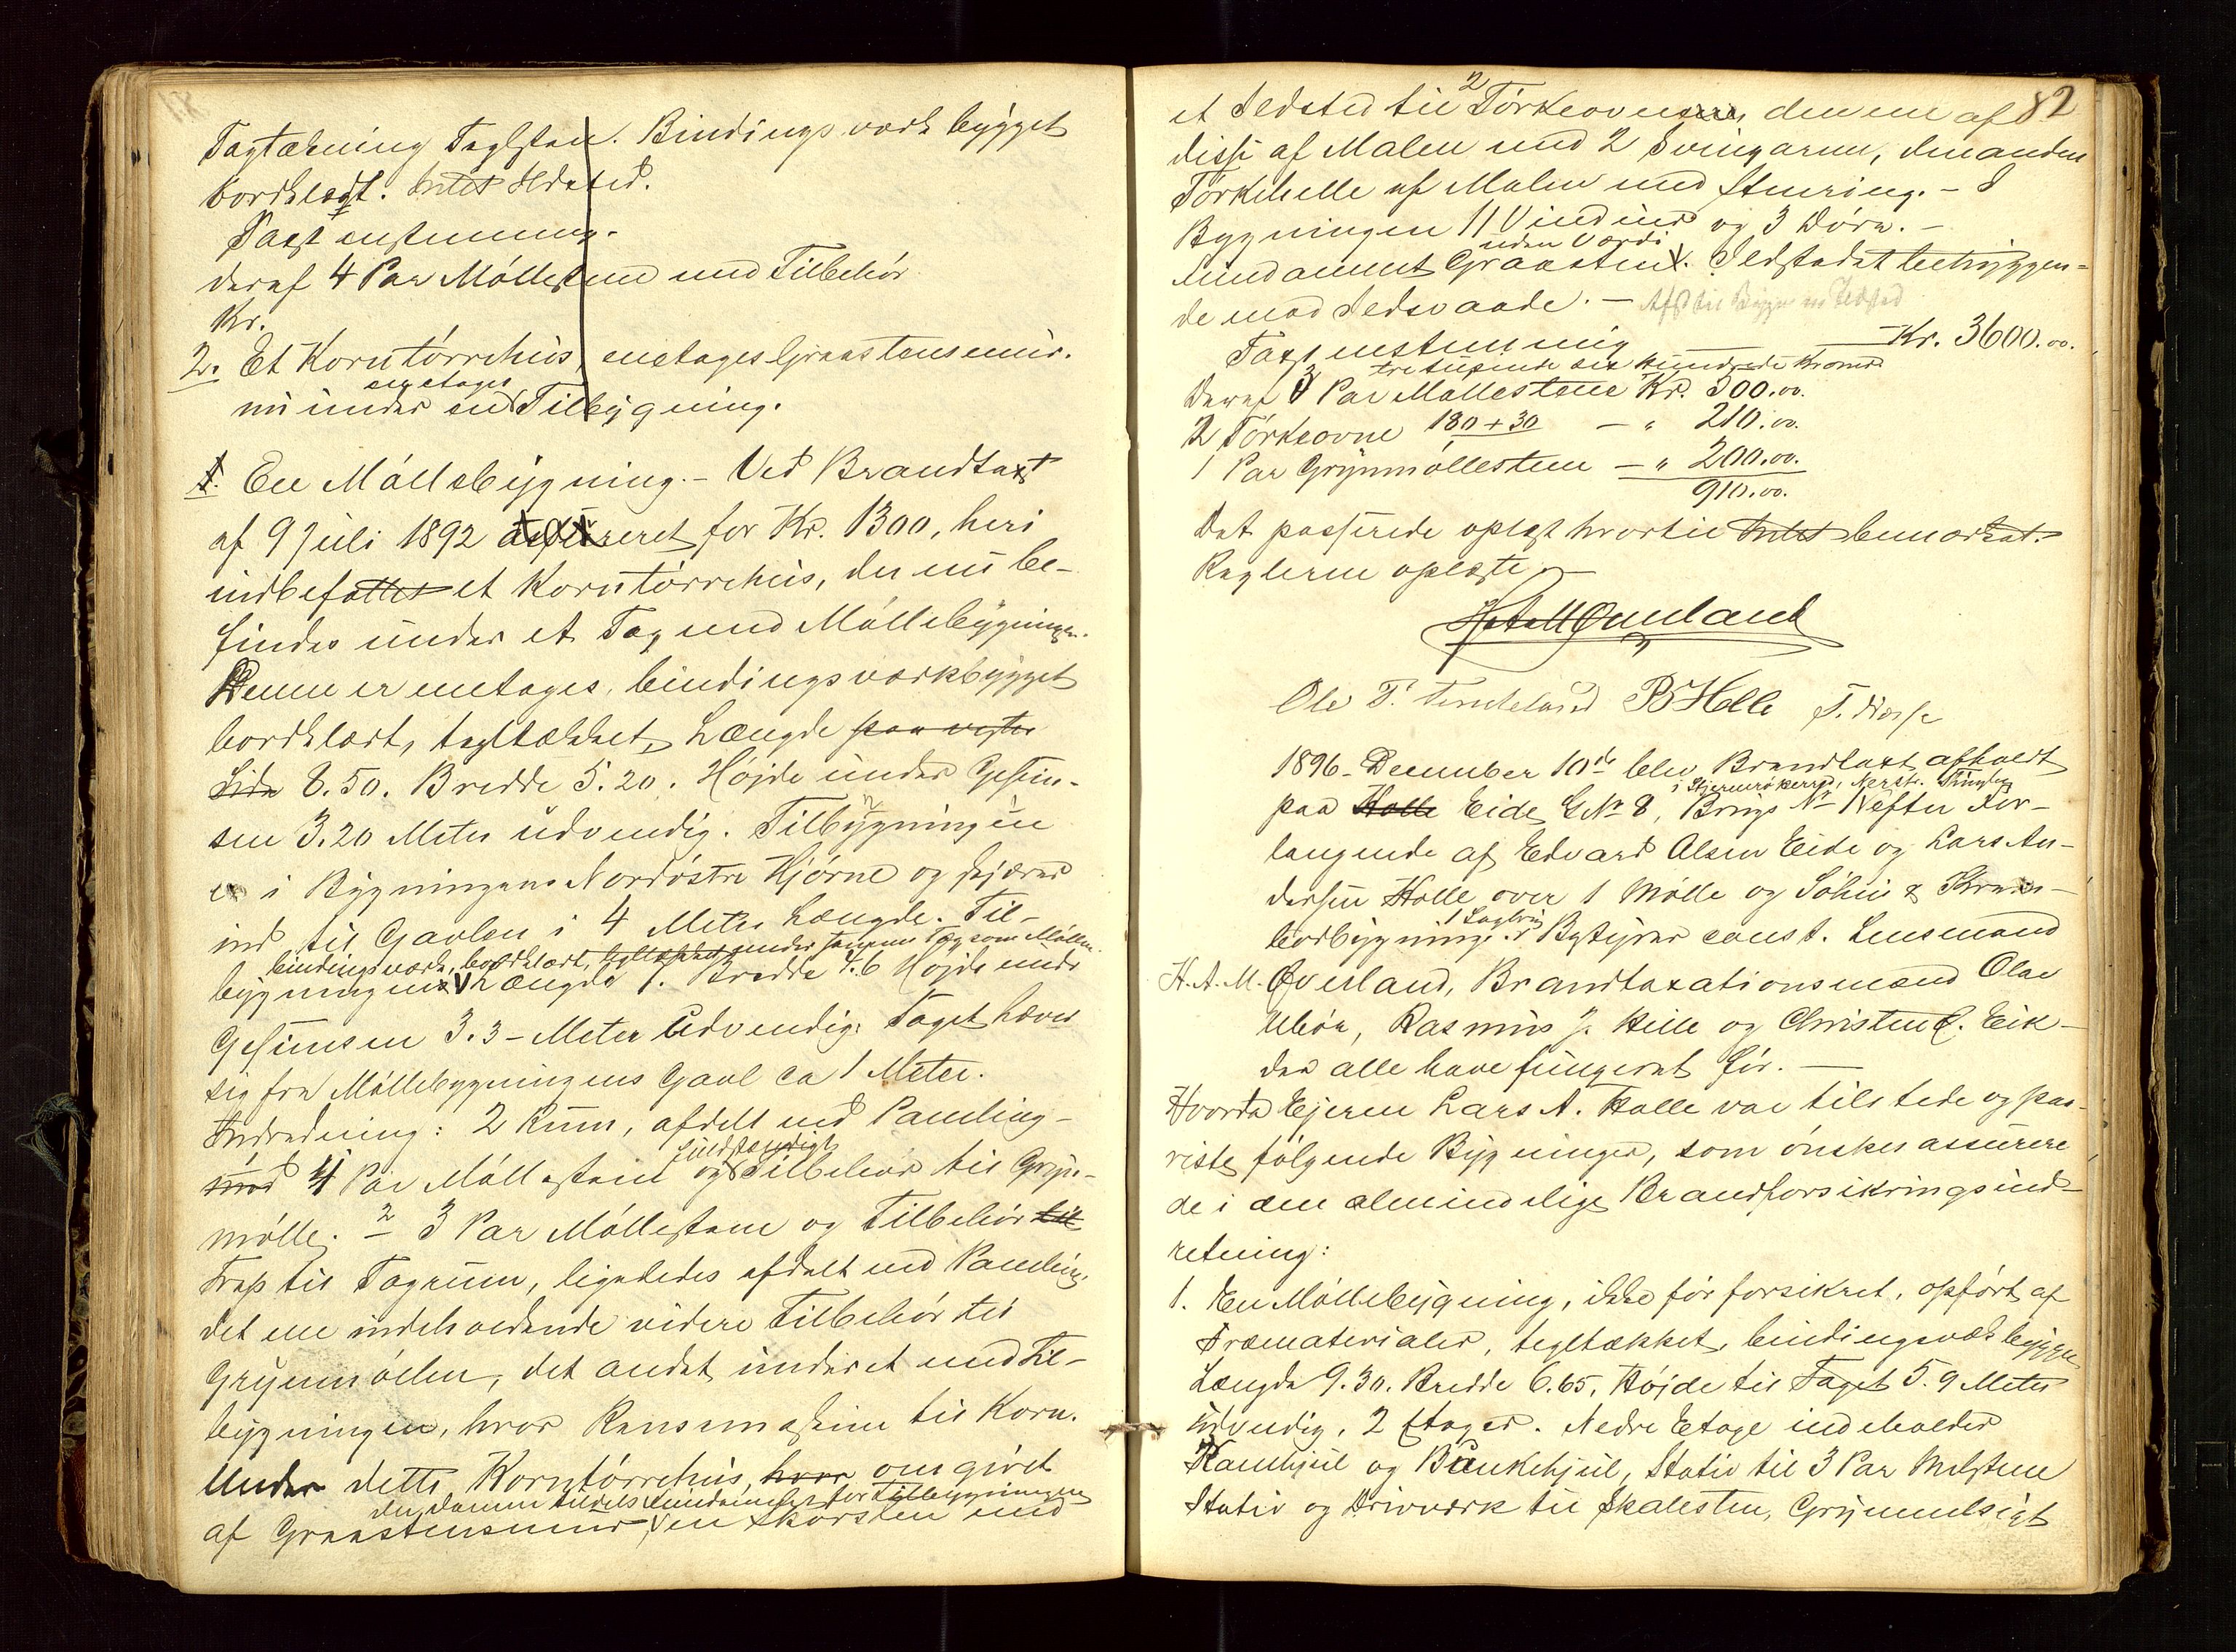 Tagtækning Taglsten. Bindingsværk bygget
bordklædt. Intet Ildsted.
Taxt enstemmig.
deraf 4 Par Møllestene med Tilbehør
Kr.
2. Et Korntørrehus, enetages Graastensmur.
nu under en enetages Tilbygning.
1. En Møllebygning. - Ved Brandtaxt
af 9 Juli 1892 assureret for Kr. 1300, heri
indbefattet et Korntørrehus, der nu be-
findes under et Tag med Møllebygningen.
Denne er enetages, bindingsværkbygget
bordklædt, tagltækket, Længde paa vestre
Side 8.50. Bredde 5.20. Højde under Gesim-
sen 3.20 Meter udvendig. Tilbygningen
er i Bygningens Nordøstre Hjørne og skjærer
ind til Gavlen i 4 Meters Længde. Til-
bindingsværk, bordklædt, tagltækket under samme Tag som Møllen.
bygningens Længde 7. Bredde 4.6 Højde under
Gesimsen 3.3 - Meter Udvendig. Taget hæver
sig fra Møllebygningens Gavl ca 1 Meter.
Indredning: 2 Rum, afdelt med Panling -
med 1 Par Møllestene og fuldstændigt Tilbehør til Gryn-
mølle. 2 3 Par Møllestene og Tilbehør til
Trap til Tagrum, ligeledes afdelt med Panling,
det ene indeholdende videre Tilbehør til
Grynmøllen, det andet inderet med Til-
bygningen, hvor Rensemaskine til Korn.
Under dette Korntørrehus, hvor omgivet
der danner tildels Fundamentet for Tilbygningen
af Graastensmur, en Skorsten med
82
et Ildsted til 2 Tørkeovne, den ene af
disse af Malm med 2 Svingarme, den anden
Tørkehelle af Malm med Stenring. - I
Bygningen 11 Vinduer og 3 Døre. -
uden Værdi
Fundament Graasten. Ildstedet betryggen-
de mod Ildsvaade. - Afst. til Bygn. m Ildsted
Taxt enstemmig Kr. 3600.00.
tretusinde sex hundrede Kroner
Deraf 3 Par Møllestene Kr. 500.00.
2 Tørkeovne 180 + 30 - " 210.00.
1 Par Grynmøllestene - " 200.00.
910.00.
Det passerede oplæst hvortil Intet bemærket.
Reglerne oplæste. -
H A M Øverland
Ole T. B Helle T. Næsse
1896 - December 10de blev Brandtaxt afholdt
i Stjernerøkerred, Nerstr. Thinglag
paa Halle Eide, G.No 8, Brugs No 1 efter For-
langende af Edvard Olsen Eide og Lars An-
dersen Halle over 1 Mølle og Søhus & Kram-
1 Sagbrug
bodbygninger. Bestyrer const. Lensmand
H. A. M. Øverland, Brandtaxationsmænd Olav
Ubøe, Rasmus J. Helle og Christen C. Eik-
das alle have fungeret før. -
Hvorda Ejeren Lars A. Halle var tilstede og paa-
viste følgende Bygninger, som ønskes assurere
de i den almindelige Brandforsikringsind-
retning:
1. En Møllebygning, ikke før forsikret, opført af
Træmaterialer, tegltækket, bindingsværkbygget
Længde 9.30. Bredde 6.65. Højde til Taget 5.9 Meter
udvendig, 2 Etager. Nedre Etage indeholder
Kamhjul og Bunkehjul, Stativ til 3 Par Mølstene
Stativ og Drivværk til Skalesten, Grynmelsigt